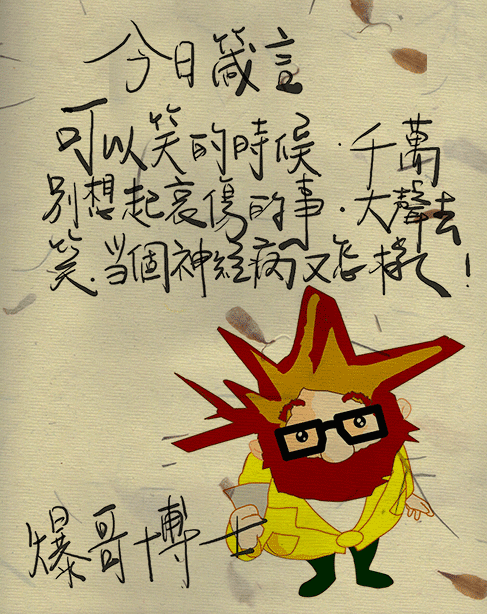 今日箴言
可以笑的時候.千萬
別想起哀傷的事.大聲去
笑.当個神經病又怎樣!
爆哥博士